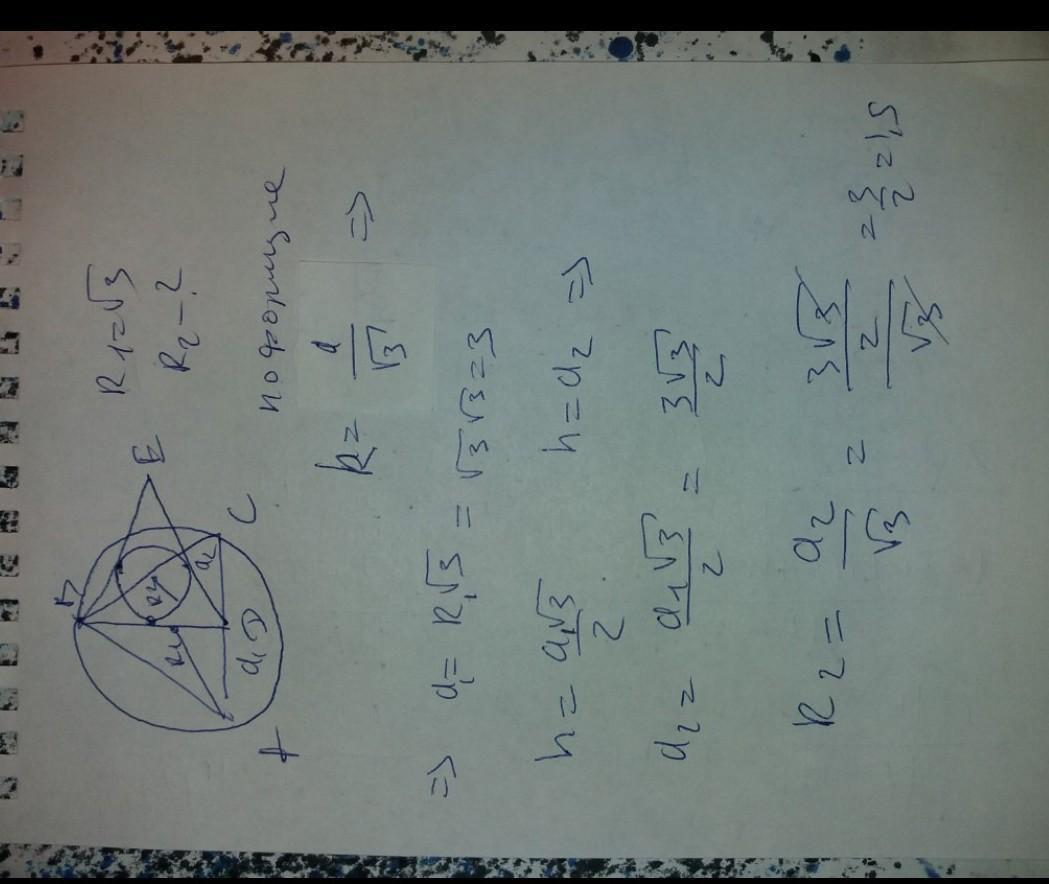 B
E
A
D
C
R₁
R₂
a₁
a₂
R₁=√3
R₂-?
по формуле
R=a/√3 =>
=> a₁=R₁√3=√3√3=3
h=a₁√3/2 h=a₂ =>
a₂=a₁√3/2=3√3/2
R₂=a₂/√3=(3√3/2)/√3=3/2=1,5